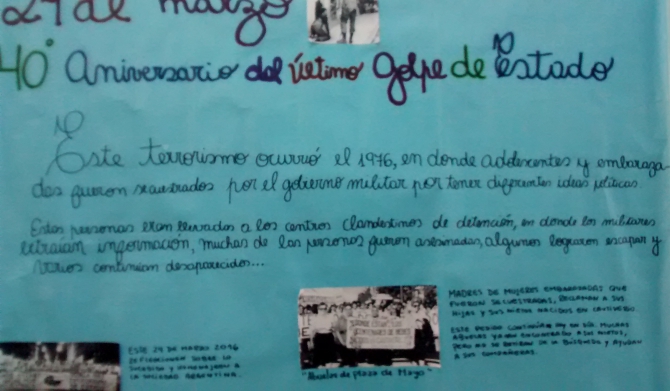 24 de marzo
40° Aniversario del último Golpe de Estado
Este terrorismo ocurrió el 1976, en donde adolescentes y embaraza-
das fueron secuestrados por el gobierno militar por tener diferentes ideas políticas.
Estas personas eran llevadas a los centros clandestinos de detención, en donde los militares
extraían información, muchas de las personas fueron asesinadas, algunos lograron escapar y
varios continúan desaparecidos...
MADRES DE MUJERES EMBARAZADAS QUE
FUERON SECUESTRADAS, RECLAMAN A SUS
HIJAS Y SUS NIETOS NACIDOS EN CAUTIVERIO
ESTE PEDIDO CONTINÚA HOY EN DÍA. MUCHAS
ABUELAS YA HAN ENCONTRADO A SUS NIETOS,
PERO NO SE OLVIDAN DE LA BÚSQUEDA Y AYUDAN
A SUS COMPAÑERAS.
"Abuelas de plaza de Mayo"
ESTE 24 DE MARZO 2016
REFLEXIONAR SOBRE LO
SUCEDIDO Y HOMENAJEAR A
LA SOCIEDAD ARGENTINA.